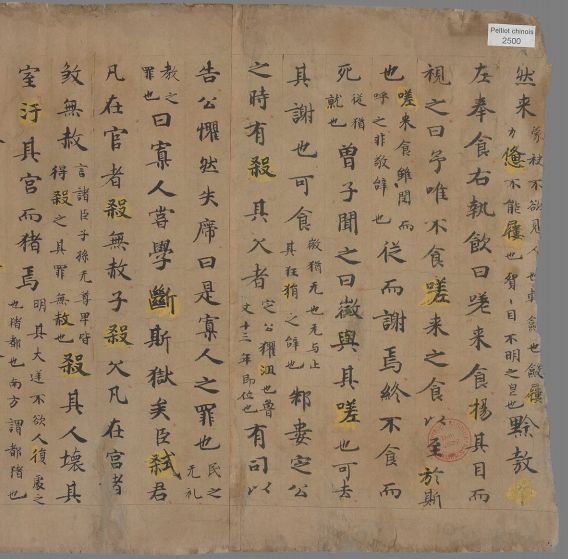 Pelliot chinois
2500
然来蒙袂不欲見人也輯斂也斂屨力惫不能屨也貿〻目不明之皃也黔敖
左奉食右執飲曰嗟来食揚其目而
視之曰予唯不食嗟来之食以至於斯
也嗟来食雖閔而呼之非敬辝也從而謝焉終不食而
死從猶就也曾子聞之曰微與其嗟也可去
其謝也可食微猶无也无与止其狂狷之辝也邾婁定公
之時有殺其父者定公貜沮也魯文十三年即位也有司以
告公懼然失席曰是寡人之罪也民之无礼
教之罪也曰寡人甞學斷斯獄矣臣弑君
凡在官者殺無赦子殺父凡在宮者
殺無赦言諸臣子孫无尊卑皆得殺之其罪無赦也殺其人壞其
室汙其宫而猪焉明其大逆不欲人復處之也猪都也南方謂都猪也